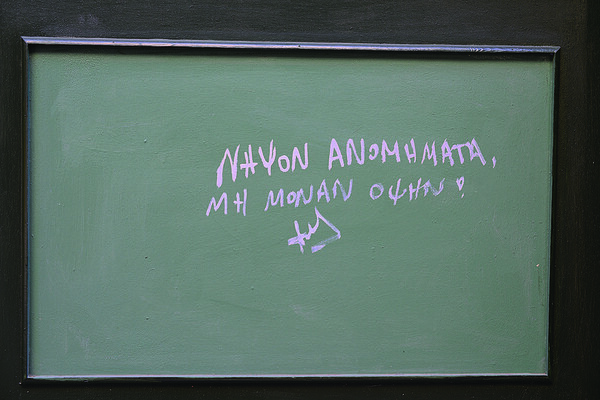 ΝΗΨΟΝ ΑΝΟΜΗΜΑΤΑ,
ΜΗ ΜΟΝΑΝ ΟΨΗΝ!